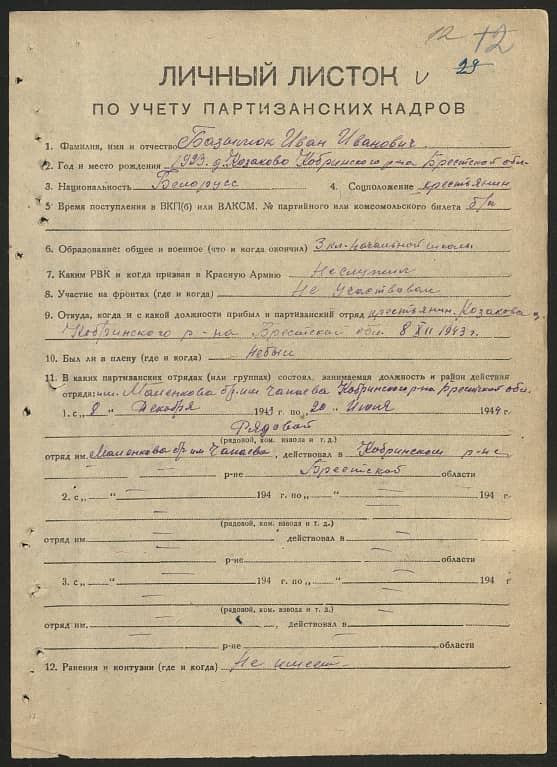 12 12
29
ЛИЧНЫЙ ЛИСТОК
ПО УЧЕТУ ПАРТИЗАНСКИХ КАДРОВ
1. Фамилия, имя и отчество Иван Иванович.
2. Год и место рождения 1923 д. Козаково Кобринского р-на Брестской обл.
3. Национальность Белорусс 4. Соцположение крестьянин
5 Время поступления в ВКП(б) или ВЛКСМ. № партийного или комсомольского билета б/п
6. Образование: общее и военное (что и когда окончил) 3 кл. начальной школы
7. Каким РВК и когда призван в Красную Армию Неслужил
8. Участие на фронтах (где и когда) Не участвовал
9. Откуда, когда и с какой должности прибыл в партизанский отряд крестьянин. Козакова д.
Кобринского р-на Брестской обл. 8 XII 1943 г.
10. Был ли в плену (где и когда) Небыл
11. В каких партизанских отрядах (или группах) состоял, занимаемая должность и район действия
отряда: им. Маленкова бр. им Чапаева Кобринского р-на Брестской обл.
1. с „8 " Декабря 1943 г. по „20 " Июля 1944 г.
Рядовой
(рядовой, ком. взвода и т. д.)
отряд им. Маленкова бр им Чапаева, действовал в Кобринском р-не,
р-не Брестской области
2. с „ — " — 194 г. по „ — " — 194 г.
(рядовой, ком. взвода и т. д.)
отряд им. — действовал в —
р-не — области
3. с „ — " — 194 г. по „ — " — 194 г
(рядовой, ком. взвода и т. д.)
отряд им. — , действовал в —
р-не — области
12. Ранения и контузии (где и когда) Не имеет